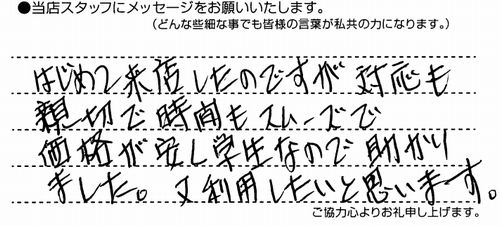 ●当店スタッフにメッセージをお願いいたします。
(どんな些細な事でも皆様の言葉が私共の力になります。)
はじめて来店したのですが 対応も
親切で時間もスムーズで
価格が安し学生なので助かり
ました。又利用したいと思います。
ご協力心よりお礼申し上げます。